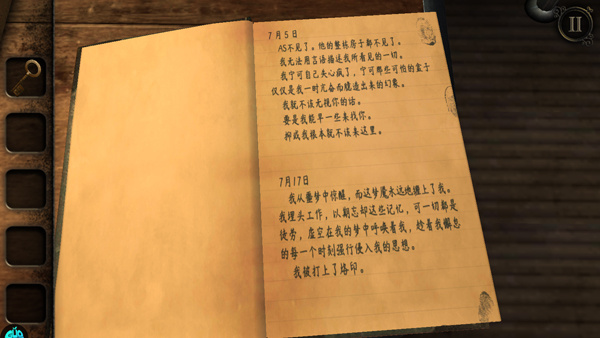 7月5日
AS不见了。他的整栋房子都不见了。
我无法用言语描述我所看见的一切。
我宁可自己失心疯了，宁可那些可怕的盒子
仅仅是我一时亢奋而臆造出来的幻象。
我就不该无视你的话。
要是我能早一些来找你。
抑或我根本就不该来这里。
7月17日
我从噩梦中惊醒，而这梦魇永远地缠上了我。
我埋头工作，以期忘却这些记忆，可一切都是
徒劳，虚空在我的梦中呼唤着我，趁着我懈怠
的每一个时刻强行侵入我的思想。
我被打上了烙印。
II